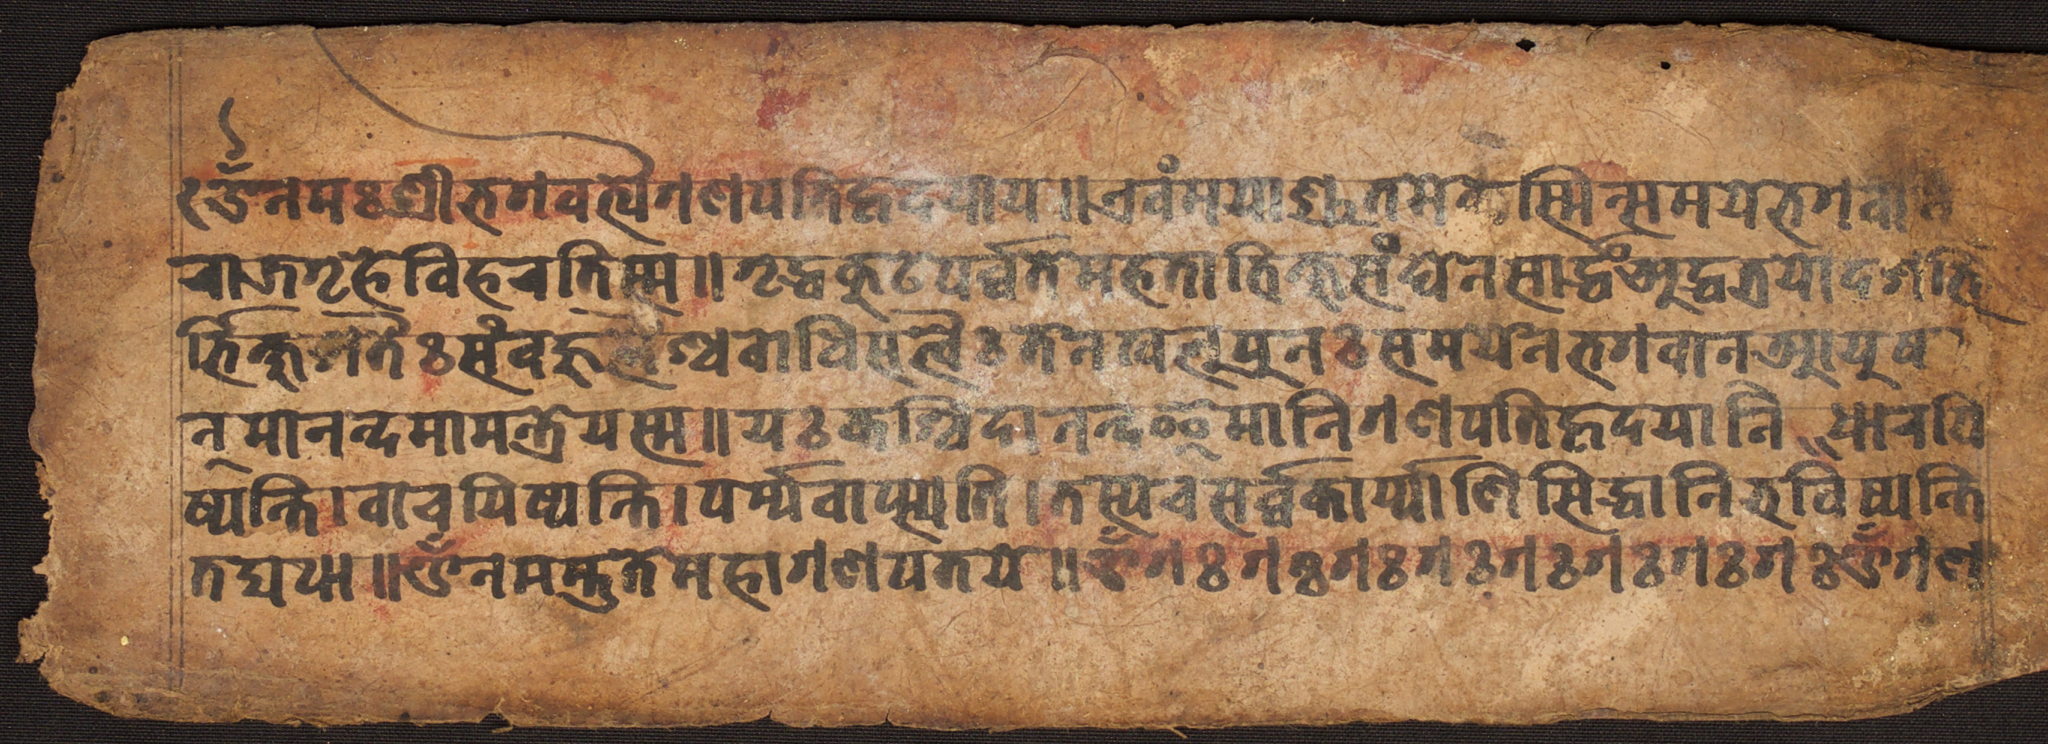 ॐ नमः श्रीभगवत्यै गणपतिहृदयाय ॥ एवं मया श्रुतमेकस्मिन्समये भगवान्
राजगृहे विहरतिस्म ॥ गृद्धकूटपर्व्वते महता भिक्षुसंघेन सार्द्धं अर्द्धत्रयोदशभि
र्भिक्षुशतैः संबहुलैश्च बोधिसत्वैः तेन खलु पुनः समयेन भगवान आयुष
न्मानन्दमामन्त्रेयस्म ॥ यः कश्चिदानन्द इमानि गणपतिहृदयानि धारयि
ष्यन्ति । वाचयिष्यन्ति । पर्य्यवाप्स्यति । तस्य च सर्व्वकार्य्याणि सिद्धानि भविष्यन्ति
तद्यथा ॥ ॐ नमस्तुते महागणपतये ॥ ॐ गः गः गः गः गः गः गः गः ॐ गण